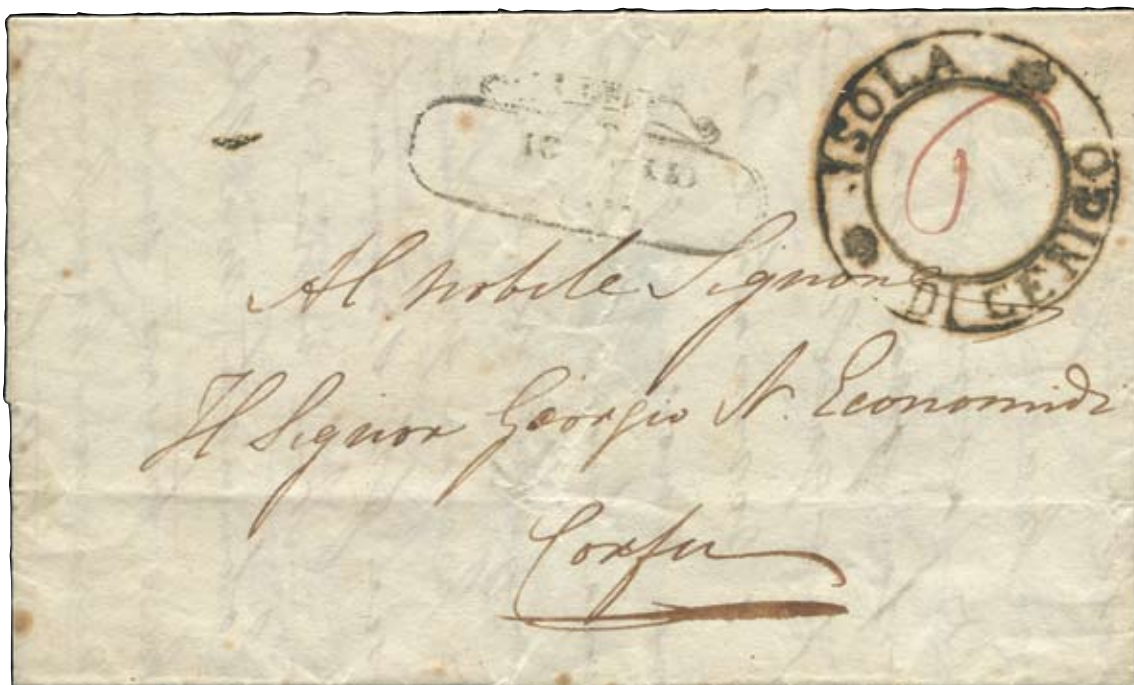 YSOLA DI CERIGO
6
Al nobile Signore
Il Signor Georgio N. Economidi
Corfu